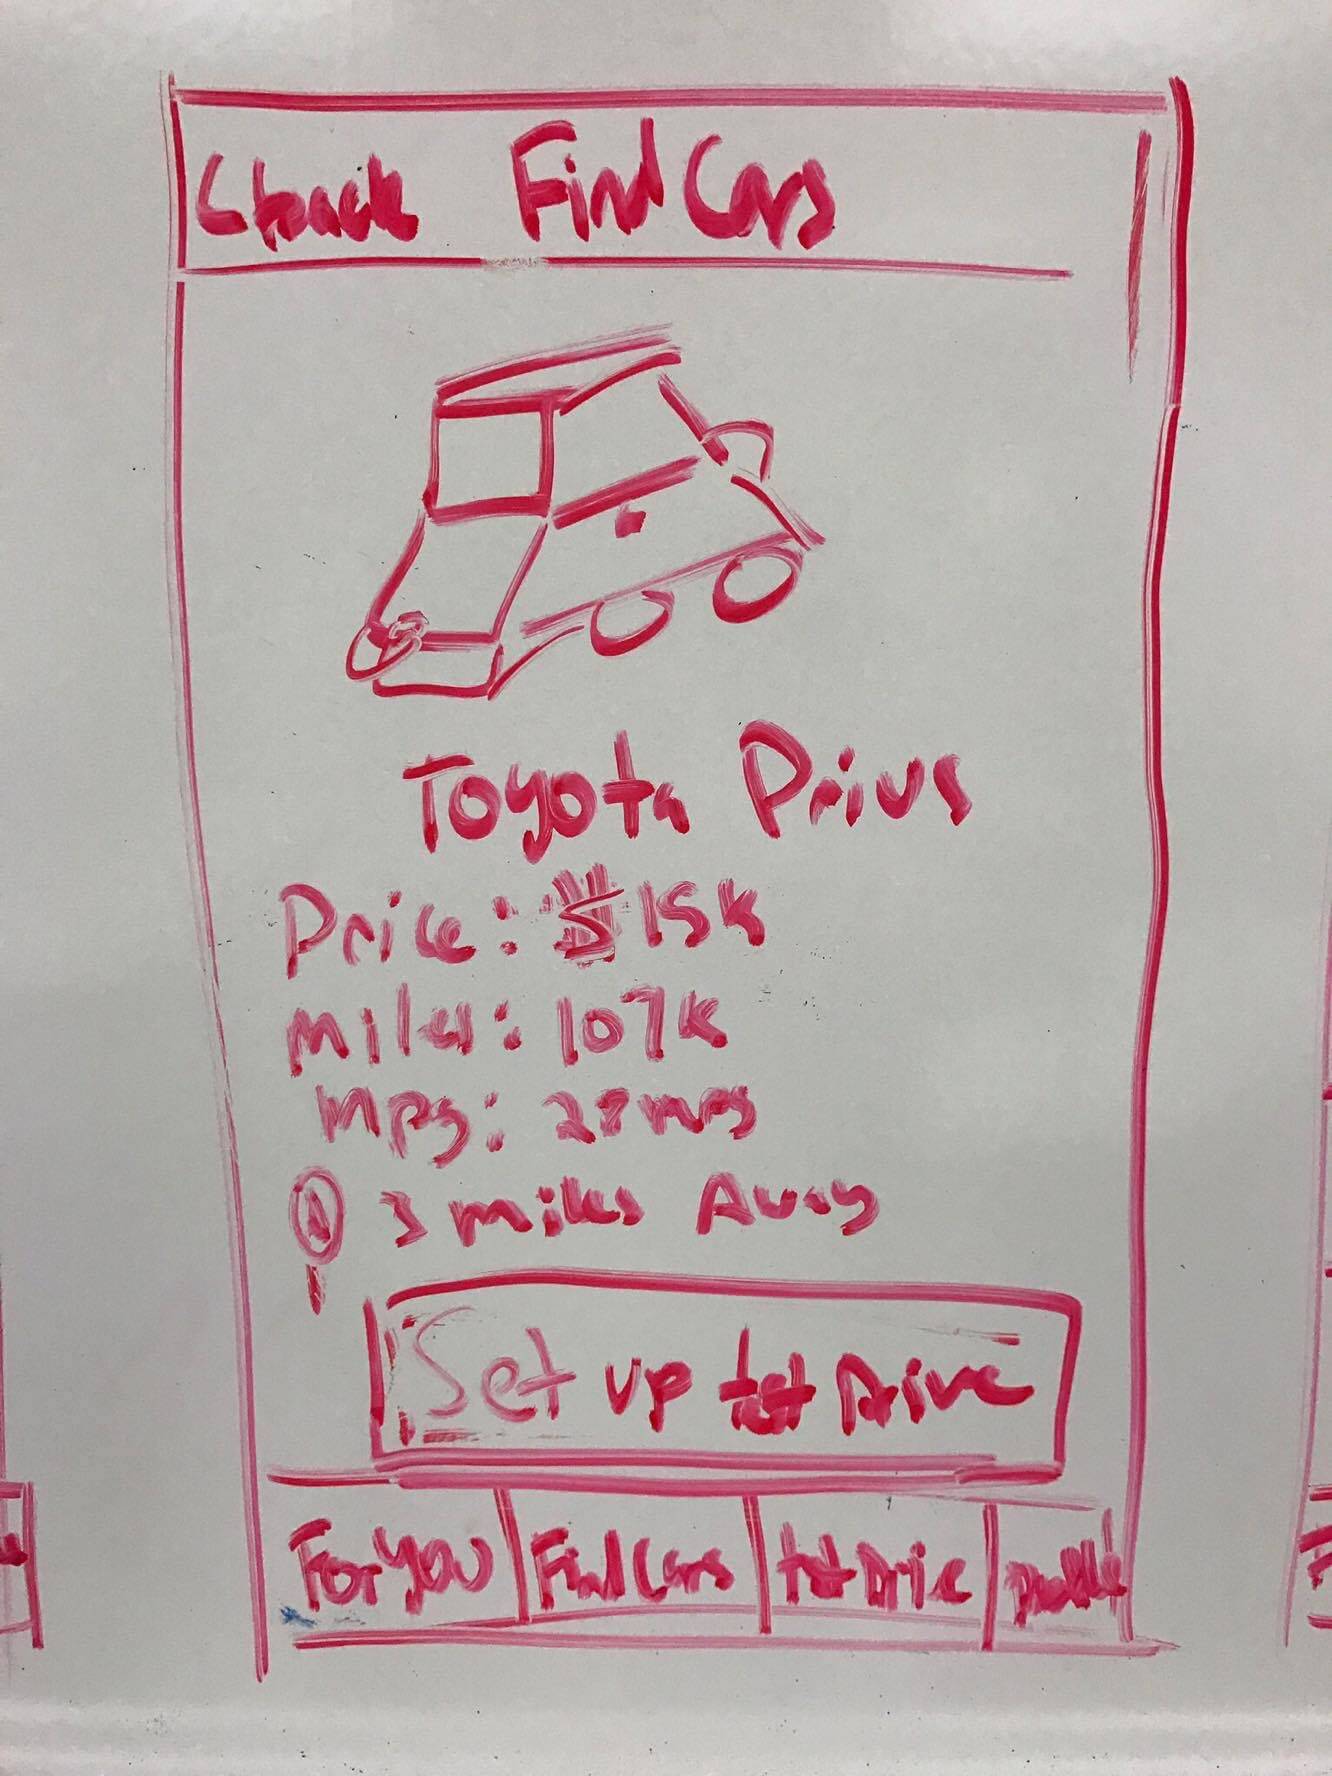 < back Find Cars
Toyota Prius
Price: $15k
Miles: 107k
Mpg: 28 mpg
3 miles Away
Set up test Drive
For You Find Cars test Drive profile